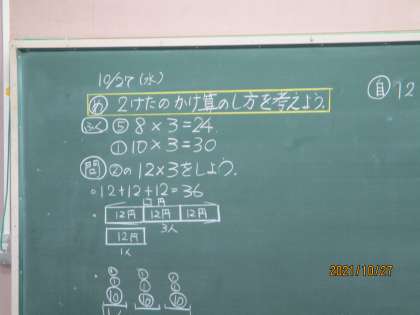 10/27(水)
め 2けたのかけ算のし方を考えよう。
ふく ⑤ 8×3=24
① 10×3=30
問 ②の 12×3をしよう。
12+12+12=36
□円
12円 12円 12円
3人
12円
1人
10 10 10
自 12
2021/10/27